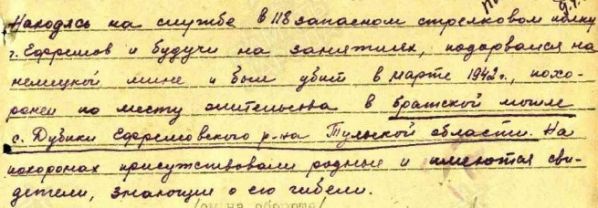 Находясь на службе в 118 запасном стрелковом полку
г. Ефремов и будучи на занятиях, подорвался на
немецкой мине и был убит в марте 1942 г., похо-
ронен по месту жительства в братской могиле
с. Дубики Ефремовского р-на Тульской области. На
похоронах присутствовали родные и имеются сви-
детели, знающие о его гибели.
/см на обороте/